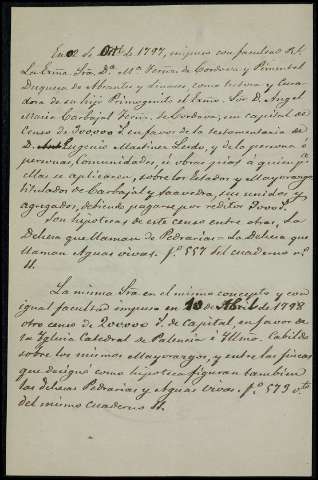 En 2 de Oct.e de 1797, impuso con facultad R.l
La Exma. Sra. D.a M.a Vicenta de Cordova y Pimentel
Duquesa de Abrantes y Linares como tutora y Cura-
dora de su hijo Primogenito el Exmo. Sor. D. Angel
Maria Carbajal Fern.z de Cordova, un capital de
Censo de 300000 r.s en favor de la testamentaria de
D. Eugenio Martinez Lerdo, y de la persona ó
personas, Comunidades, ú obras pias á quien p.r
ellas se aplicaren, sobre los Estados y Mayorazgos
titulados de Carbajal y Saavedra, sus unidos y
agregados, debiendo pagarse por reditos
Son hipotecas de este censo entre otras, La
Dehesa que llaman de Pedrarias = La Dehesa que
llaman Aguas vivas. f.o 557 del cuaderno n.o
11.
La misma Sra. en el mismo concepto y con
igual facultad impuso en 10 de Abril de 1798
otro censo de 200000 r.s de Capital, en favor de
la Yglesia Catedral de Palencia é Yllmo. Cabildo
sobre los mismos Mayorazgos, y entre las fincas
que designó como hipoteca figuran tambien
las dehesas Pedrarias y Aguas vivas. f.o 573 v.to
del mismo cuaderno 11.